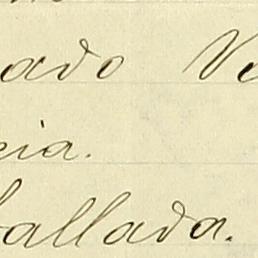 ado Ve
cia.
fallada.